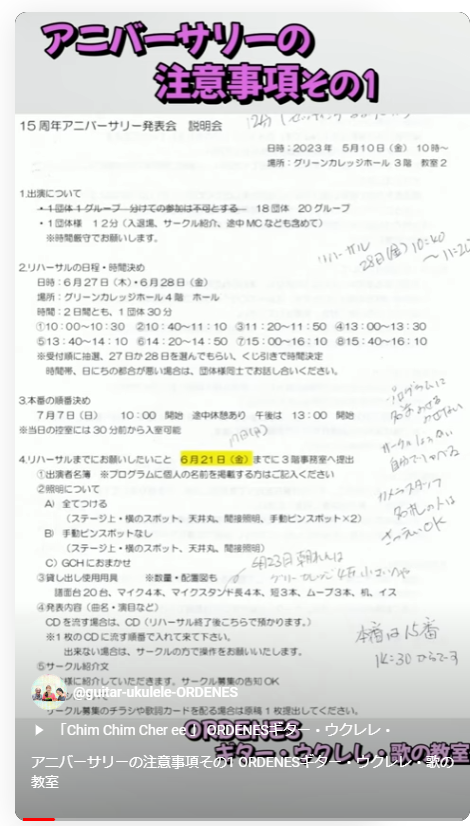 アニバーサリーの
注意事項その1
12分
15周年アニバーサリー発表会 説明会
日時：2023年 5月10日（金） 10時～
場所：グリーンカレッジホール 3階 教室2
1.出演について
・1団体1グループ 分けての参加は不可とする 18団体 20グループ
・1団体様 12分（入退場、サークル紹介、途中MCなども含めて）
※時間厳守でお願いします。
リハーサル
28日(金) 10:40
～11:20
2.リハーサルの日程・時間決め
日時：6月27日（木）・6月28日（金）
場所：グリーンカレッジホール4階 ホール
時間：2日間とも、1団体30分
①10：00～10：30 ②10：40～11：10 ③11：20～11：50 ④13：00～13：30
⑤13：40～14：10 ⑥14：20～14：50 ⑦15：00～16：10 ⑧15：40～16：10
※受付順に抽選、27日か28日を選んでもらい、くじ引きで時間決定
時間帯、日にちの都合が悪い場合は、団体様同士でお話し合いください。
3.本番の順番決め
7月7日（日） 10：00 開始 途中休憩あり 午後は 13：00 開始
※当日の控室には30分前から入室可能
プログラムに
名前のせる
のせない
サークルしょうかい
自分でしゃべる
カメラスタッフ
名札の人は
さつえいOK
4.リハーサルまでにお願いしたいこと 6月21日（金）までに3階事務室へ提出
①出演者名簿 ※プログラムに個人の名前を掲載する方はご記入ください
②照明について
A) 全てつける
（ステージ上・横のスポット、天井丸、間接照明、手動ピンスポット×2）
B) 手動ピンスポットなし
（ステージ上・横のスポット、天井丸、間接照明）
C) GCHにおまかせ
6月23日 朝れんは
③貸し出し使用用具 ※数量・配置図も
譜面台20台、マイク4本、マイクスタンド長4本、短3本、ムーブ3本、机、イス
④発表内容（曲名・演目など）
CDを流す場合は、CD（リハーサル終了後こちらで預かります。）
※1枚のCDに流す順番で入れて来て下さい。
出来ない場合は、サークルの方で操作をお願いいたします。
本番は15番
14:30
⑤サークル紹介文
様に紹介していただきます。サークル募集の告知OK
@guitar-ukulele-ORDENES
サークル募集のチラシや歌詞カードを配る場合は原稿1枚提出してください。
「Chim Chim Cher ee」 ORDENESギター・ウクレレ・
ORDENES
ギター・ウクレレ・歌の教室
アニバーサリーの注意事項その1 ORDENESギター・ウクレレ・歌の
教室